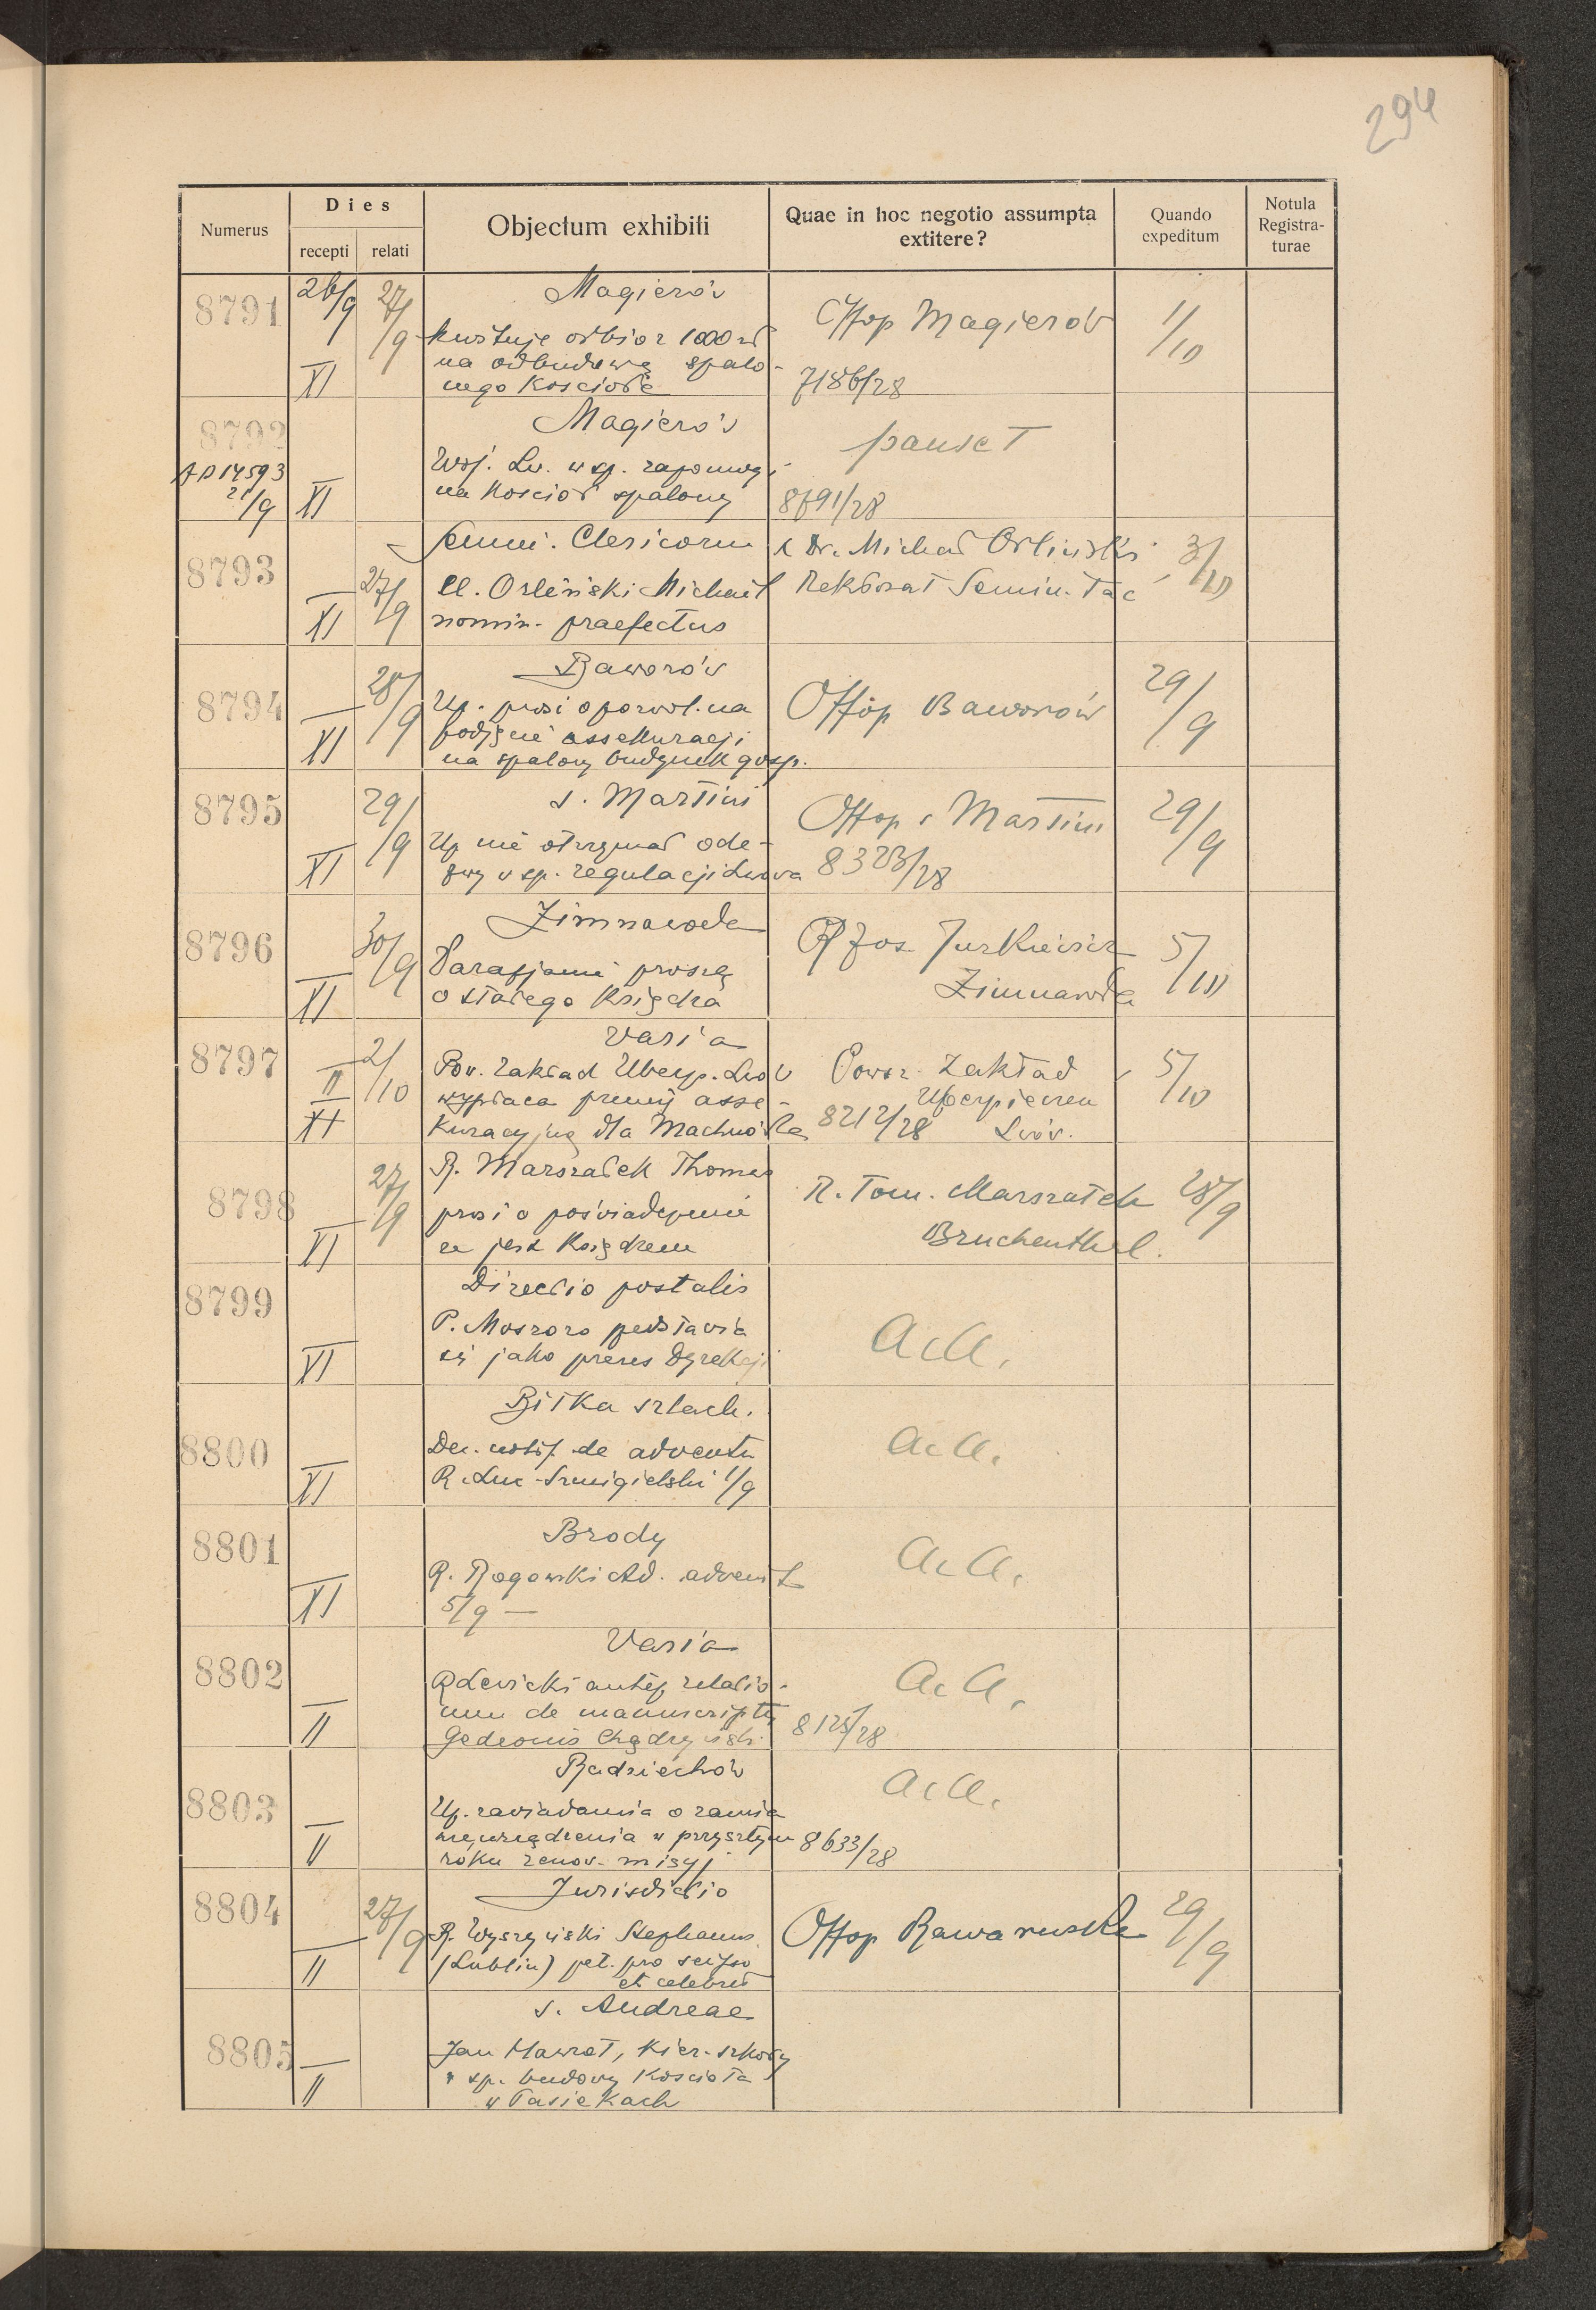 294
Numerus
Dies
recepti relati
Objectum exhibiti
Quae in hoc negotio assumpta
extitere?
Quando
expeditum
Notula
Registra-
turae
8791
26/9
27/9
XI
Magierów
kwituje odbiór 1000 zł
na odbudowę spalo-
nego Kościoła
Offop Magierów
7186/28
1/10
8792
AD 14593
21/9
XI
Magierów
Woj. Lw. w sp. zapomogi
na Kościół spalony
pauset
8791/28
8793
XI
27/9
Semin. Clericorum
Cl. Orliński Michael
nomin. praefectus
Dr. Michał Orliński
Rektorat Semin. Łac
3/10
8794
XI
28/9
Baworów
Up. prosi o pozwol. na
podjęcie assekuracji
na spalony budynek gosp.
Offop Baworów
29/9
8795
XI
29/9
s. Martini
Up nie otrzymał ode-
zwy w sp. regulacji Lwowa
Offop s Martini
8323/28
29/9
8796
XI
30/9
Zimnawoda
Parafjanie proszą
o stałego Księdza
Jos Jurkiewicz
Zimnawoda
5/10
8797
II
XI
2/10
Varia
Pow. Zakład Ubezp. Lwów
wypłaca premij asse-
kuracyjną dla Machnówka
Powsz. Zakład
Ubezpieczen
8212/28 Lwów.
5/10
8798
XI
27/9
R. Marszałek Thomas
prosi o poświadczenie
że jest Księdzem
R. Tom. Marszałek
Bruchenthal.
28/9
8799
XI
Directio postalis
P. Moszoro przedstawia
się jako prezes Dyrekcji
AcA.
8800
XI
Biłka szlach.
Dec. notif. de adventu
R. Luc. Szmigielski 1/9
AcA.
8801
XI
Brody
R. Rogowski Ad. advenit
5/9 —
AcA.
8802
II
Varia
R Lewicki relatio-
nem de manuscripto
Gedeonis Chądzyński
AcA.
8125/28
8803
II
Radziechów
Up. zawiadamia o zamia
rze urządzenia w przyszłym
roku renov. misyj
AcA.
8633/28
8804
II
27/9
Jurisdictio
R. Wyszyński Stephanus
(Lublin) pet. pro
et celebret
Offop Rawa ruska
29/9
8805
II
s. Andreae
Jan Hawrot, Kier. szkoły
w sp. budowy Kościoła
w Pasiekach